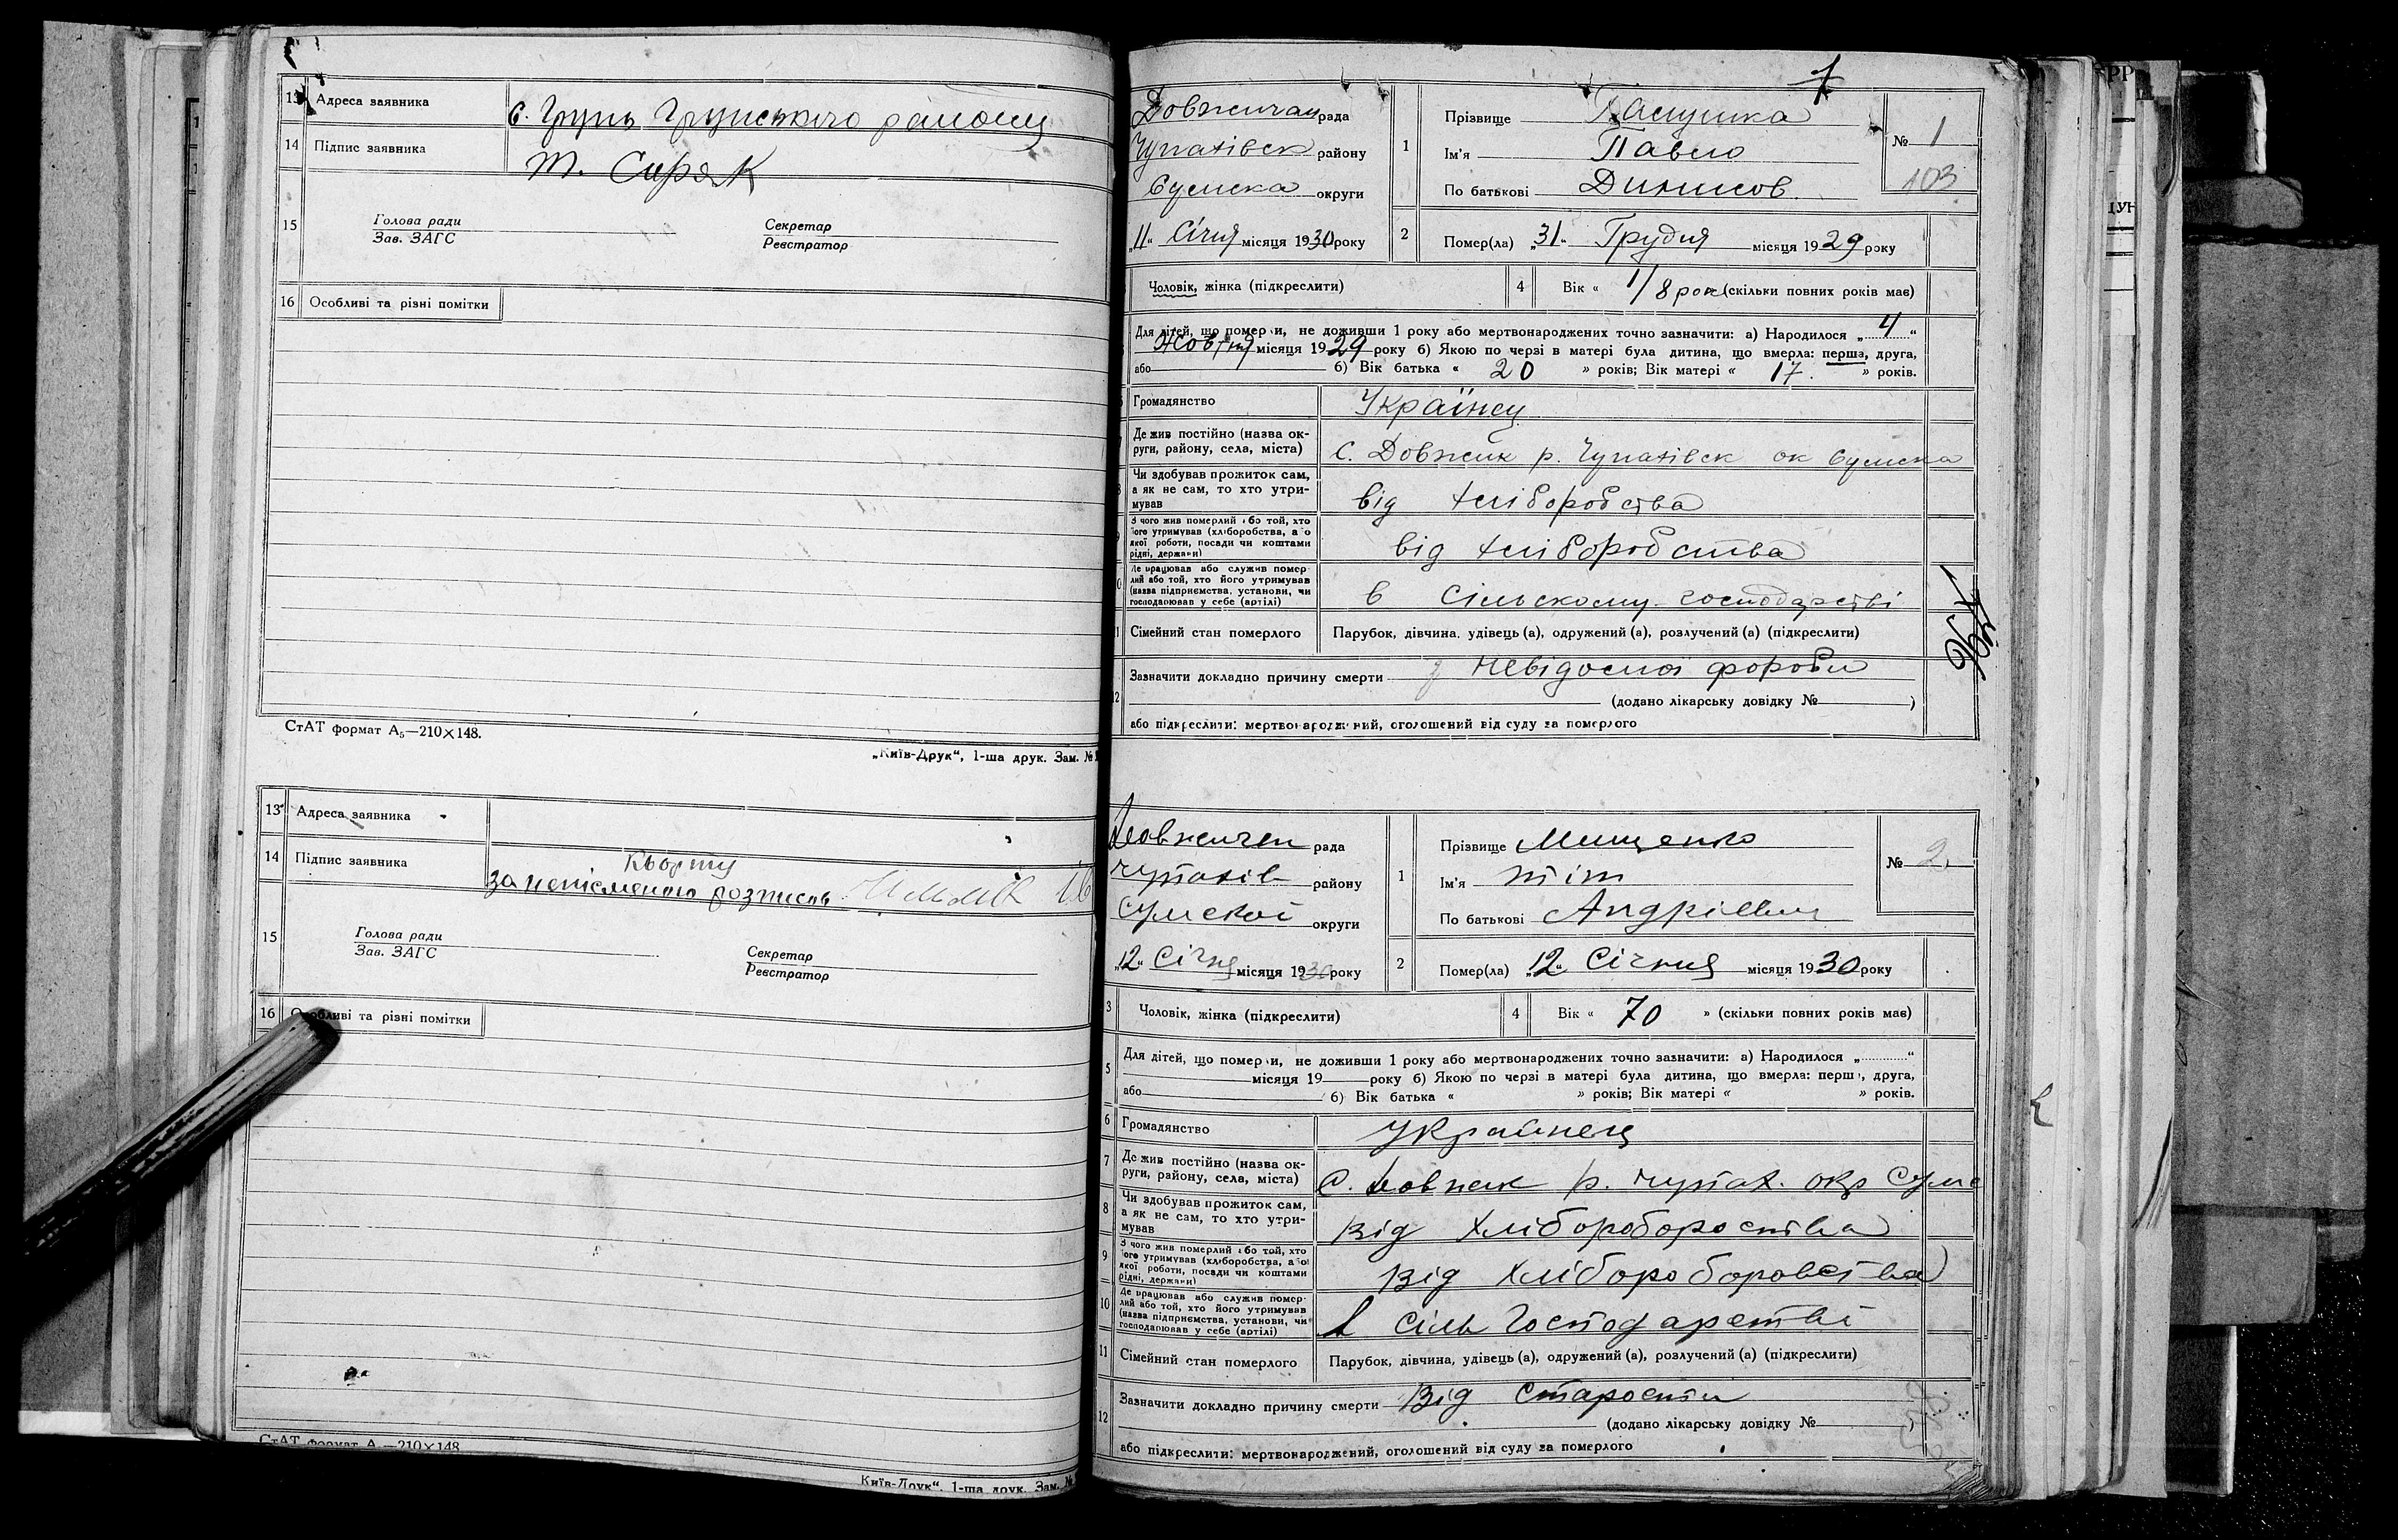 13 Адреса заявника с. Грунь Грунського району
14 Підпис заявника Т. Сиряк
15 Голова ради Секретар
Зав. ЗАГС Реєстратор
16 Особливі та різні помітки
СтАТ формат А5—210×148.
„Київ-Друк“, 1-ша друк. Зам. №
13 Адреса заявника
14 Підпис заявника
за неписьменого розписавь
15 Голова ради Секретар
Зав. ЗАГС Реєстратор
16 Особливі та різні помітки
СтАТ формат А —210×148
Київ-Друк“, 1-ша друк. Зам. №
1
Довжичан рада
Чупахівск району
Сумска округи
„11“ Січня місяця 1930 року
1 Прізвище
Ім'я Павло
По батькові Динисов.
№ 1
103
2 Помер(ла) „31“ Грудня місяця 1929 року
Чоловік, жінка (підкреслити) 4 Вік « 1/8 рок (скільки повних років має)
Для дітей, що померли, не доживши 1 року або мертвонароджених точно зазначити: а) Народилося „4“
Жовтня місяця 1929 року б) Якою по черзі в матері була дитина, що вмерла: перша, друга,
або б) Вік батька « 20 » років; Вік матері « 17. » років.
Громадянство Українец
Де жив постійно (назва округи, району, села, міста) С. Довжик р. Чупахівск ок Сумска
Чи здобував прожиток сам, а як не сам, то хто утримував від хліборобства
З чого жив померлий або той, хто його утримував (хліборобства, або якої роботи, посади чи коштами рідні, держави) від хліборобства
Де працював або служив померлий або той, хто його утримував (назва підприємства, установи, чи господарював у себе (артілі) в Сільскому господарстві
Сімейний стан померлого Парубок, дівчина, удівець (а), одружений (а), розлучений (а) (підкреслити)
Зазначити докладно причину смерти з невідомої фороби
(додано лікарську довідку № )
або підкреслити: мертвонароджений, оголошений від суду за померлого
Довжичен рада
Чупахів району
Сумской округи
„12“ Січня місяця 1930 року
1 Прізвище Мищенко
Ім'я Тіт
По батькові Андрієвич
№ 2.
2 Помер(ла) „12“ Січния місяця 1930 року
3 Чоловік, жінка (підкреслити) 4 Вік « 70 » (скільки повних років має)
5 Для дітей, що померли, не доживши 1 року або мертвонароджених точно зазначити: а) Народилося „ “
місяця 19 року б) Якою по черзі в матері була дитина, що вмерла: перша, друга,
або б) Вік батька « » років; Вік матері « » років.
6 Громадянство Украинец
7 Де жив постійно (назва округи, району, села, міста) С. Довжик р. Чупах. окр Сумс
8 Чи здобував прожиток сам, а як не сам, то хто утримував Від хлібороборoства
9 З чого жив померлий або той, хто його утримував (хліборобства, або якої роботи, посади чи коштами рідні, держави) Від хлібороборовства
10 Де працював або служив померлий або той, хто його утримував (назва підприємства, установи, чи господарював у себе (артілі) в сіль Господарстві
11 Сімейний стан померлого Парубок, дівчина, удівець (а), одружений (а), розлучений (а) (підкреслити)
12 Зазначити докладно причину смерти Від Старости
(додано лікарську довідку № )
або підкреслити: мертвонароджений, оголошений від суду за померлого